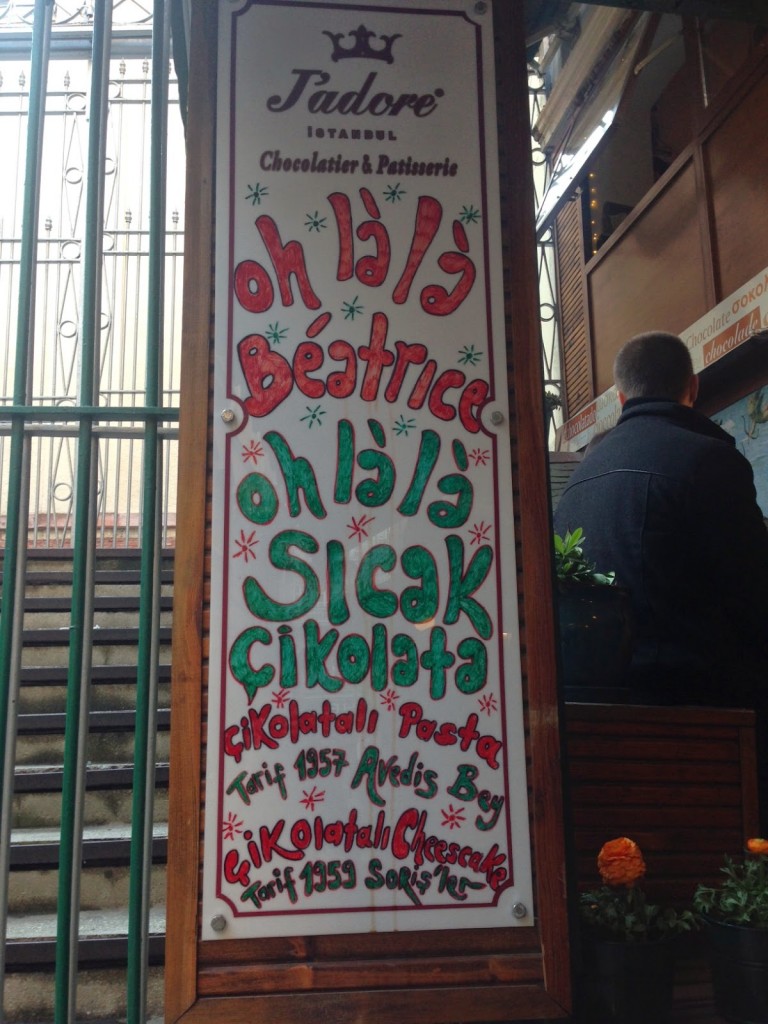 J'adore®
İSTANBUL
Chocolatier & Patisserie
oh là là
Béatrice
oh là là
Sıcak
Çikolata
Çikolatalı Pasta
Tarif 1957 Avediş Bey
Çikolatalı Cheesecake
Tarif 1959 Soriş'ler
Chocolate σοκολ
chocolade